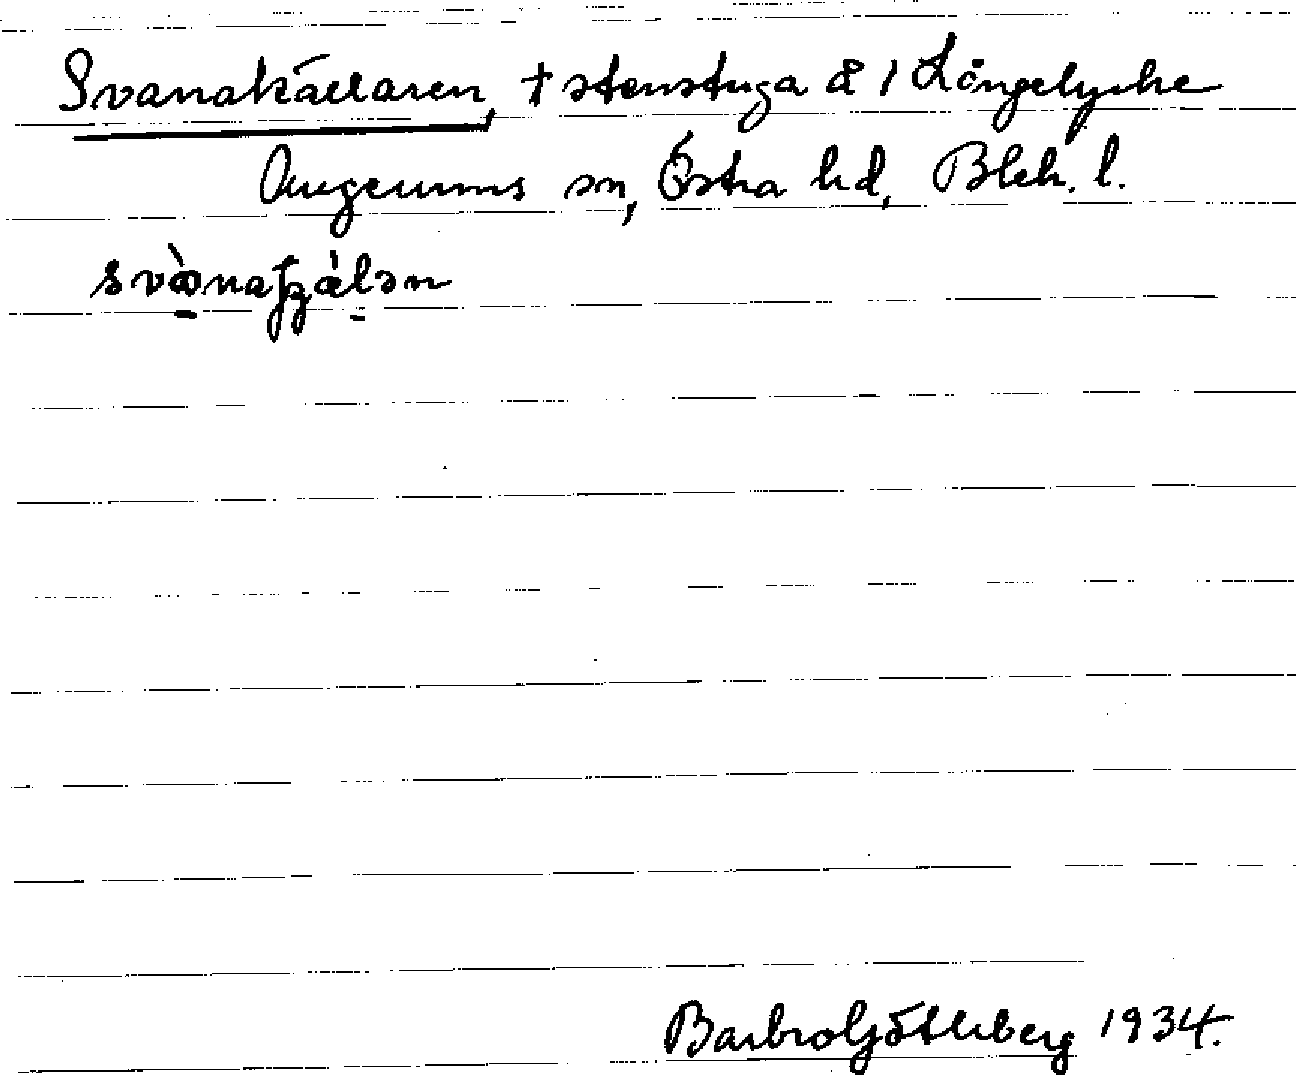 Svanakällaren, † stenstuga å 1 Långelycke
Augerums sn, Östra hd, Blek. l.
Barbro Götlberg 1934.